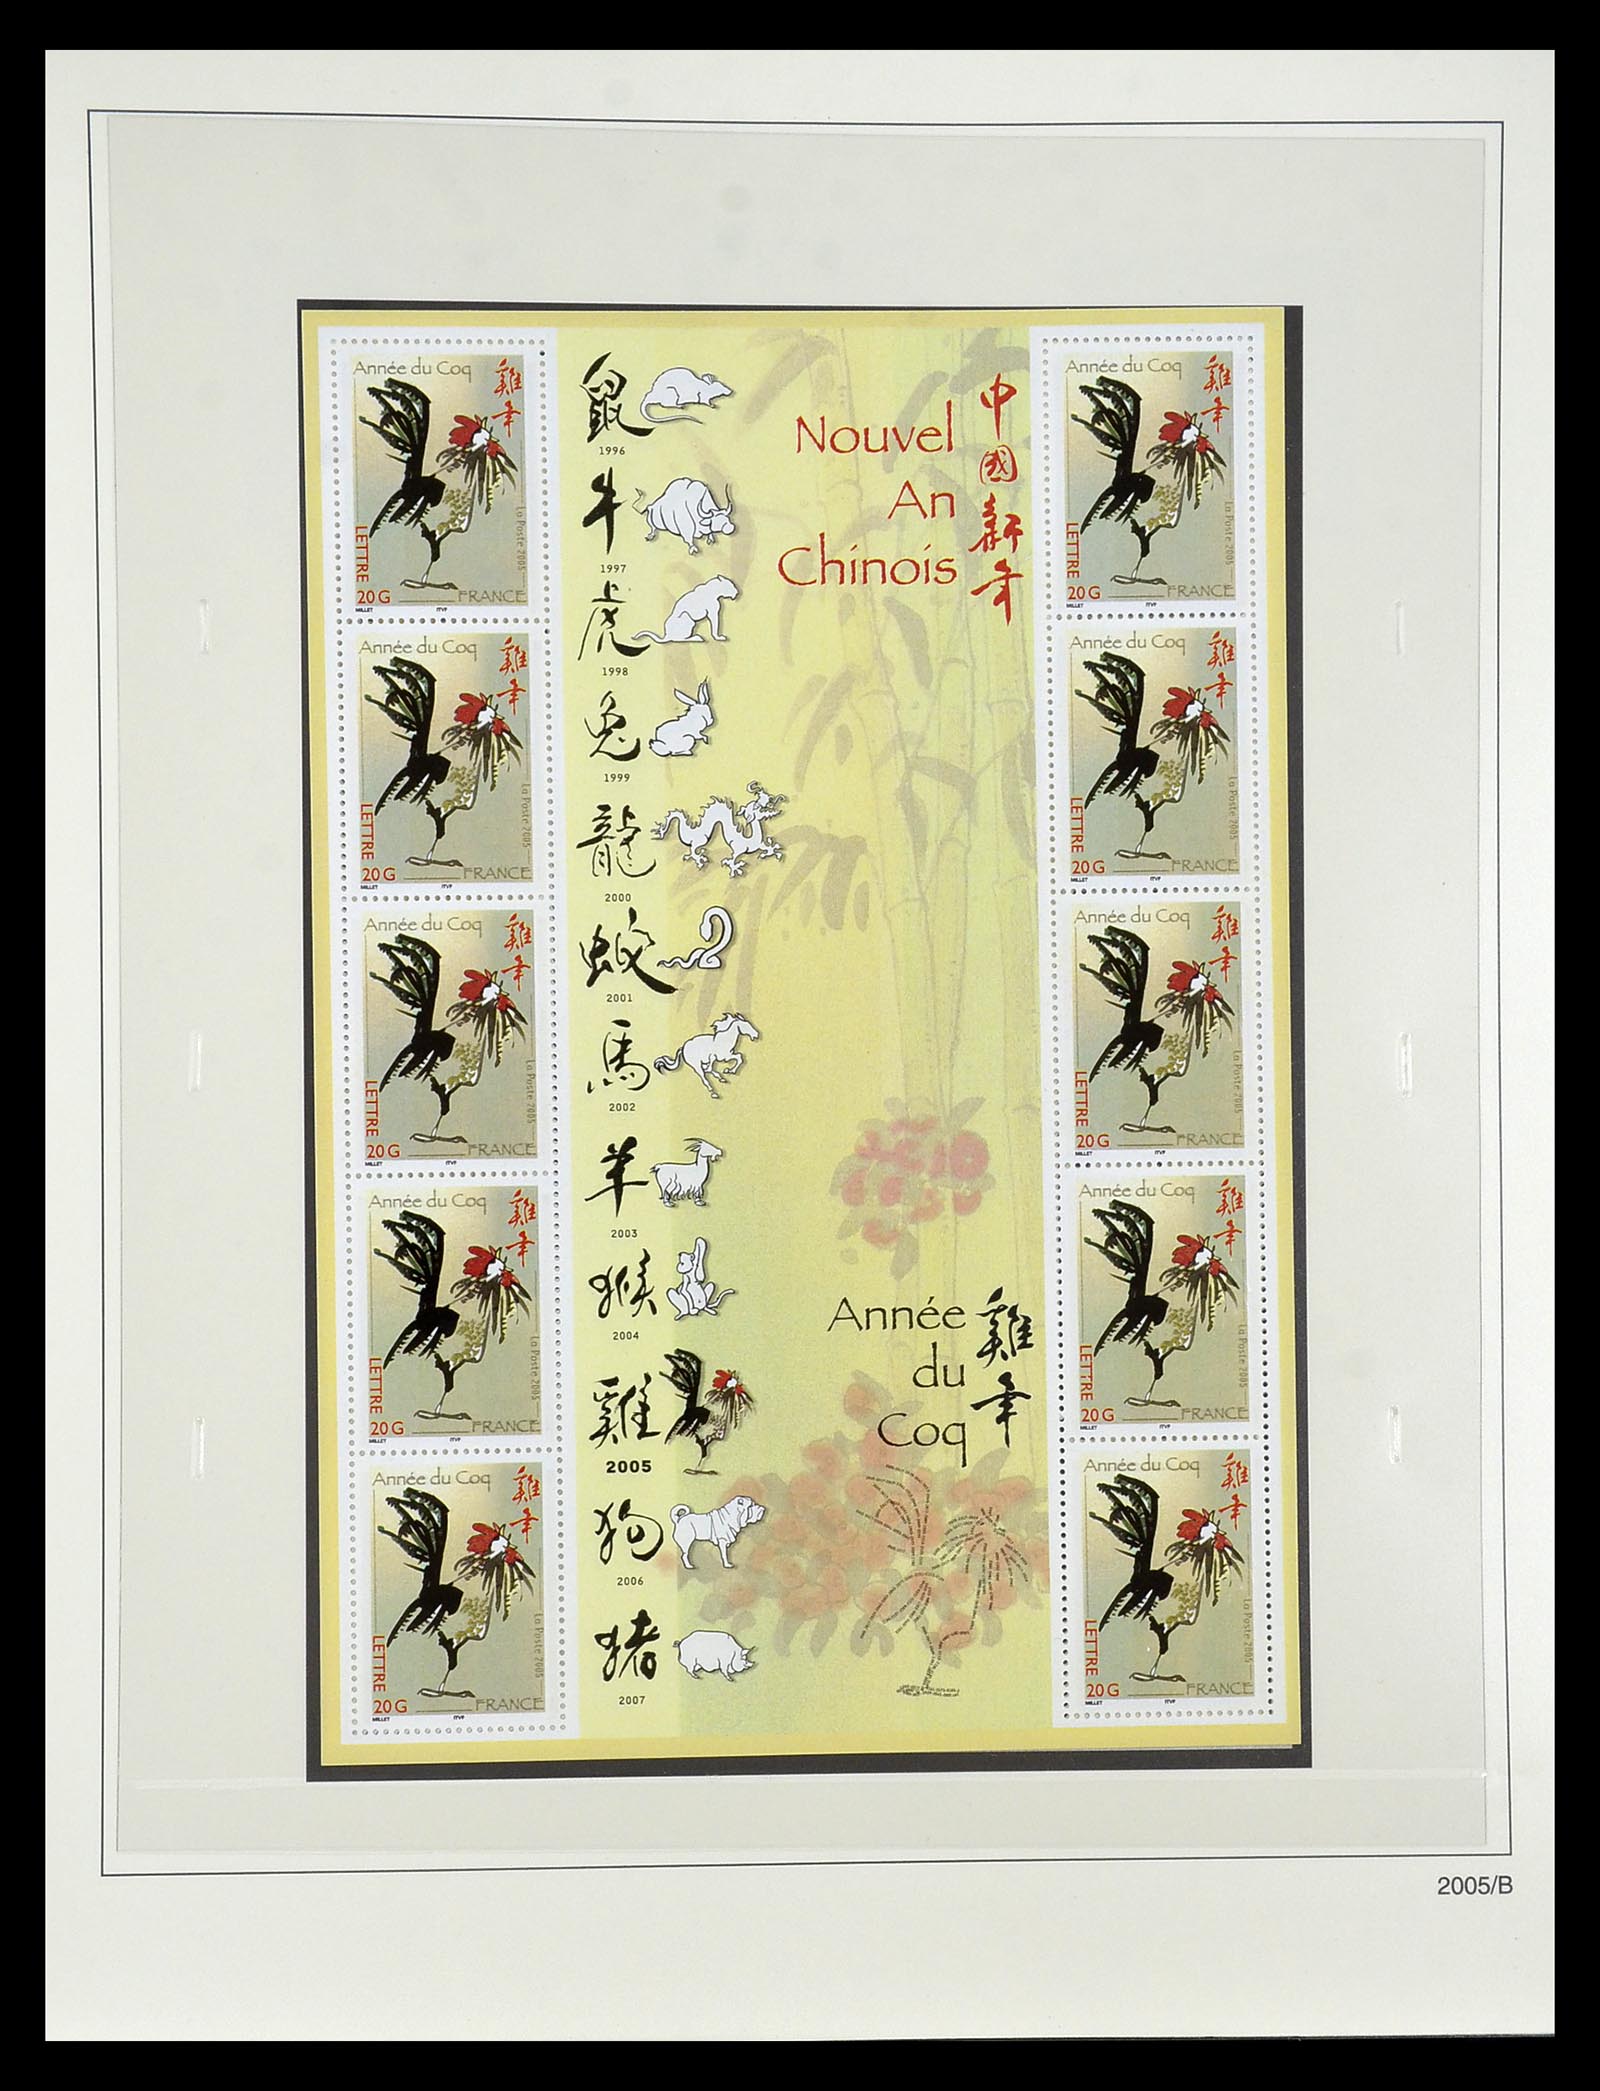 Année du Coq
雞年
La Poste 2005
LETTRE
20 G
FRANCE
MILLET
ITVF
Année du Coq
雞年
La Poste 2005
LETTRE
20 G
FRANCE
MILLET
ITVF
Année du Coq
雞年
La Poste 2005
LETTRE
20 G
FRANCE
MILLET
ITVF
Année du Coq
雞年
La Poste 2005
LETTRE
20 G
FRANCE
MILLET
ITVF
Année du Coq
雞年
La Poste 2005
LETTRE
20 G
FRANCE
MILLET
ITVF
鼠
1996
牛
1997
虎
1998
兔
1999
龍
2000
蛇
2001
馬
2002
羊
2003
猴
2004
雞
2005
狗
2006
猪
2007
Nouvel
An
Chinois
中國新年
Année
du
Coq
雞年
Année du Coq
雞年
La Poste 2005
LETTRE
20 G
FRANCE
MILLET
ITVF
Année du Coq
雞年
La Poste 2005
LETTRE
20 G
FRANCE
MILLET
ITVF
Année du Coq
雞年
La Poste 2005
LETTRE
20 G
FRANCE
MILLET
ITVF
Année du Coq
雞年
La Poste 2005
LETTRE
20 G
FRANCE
MILLET
ITVF
Année du Coq
雞年
La Poste 2005
LETTRE
20 G
FRANCE
MILLET
ITVF
2005/B